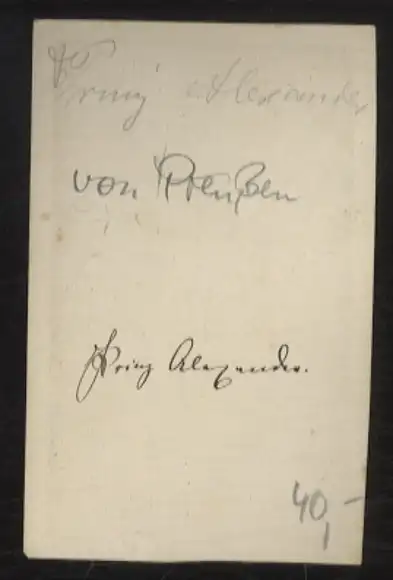 Prinz Alexander
von Preußen
Prinz Alexander.
40,-